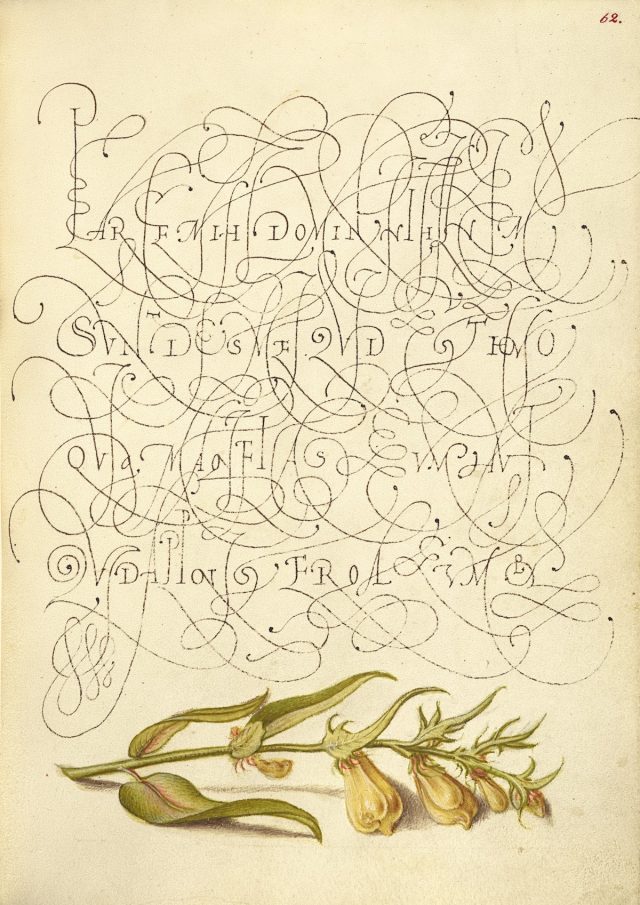 62.
PARCE MIHI DOMINE NIHIL ENIM
SUNT DIES MEI. QUID EST HOMO
QUIA MAGNIFICAS EUM. AUT
QUID APPONIS ERGA EUM &